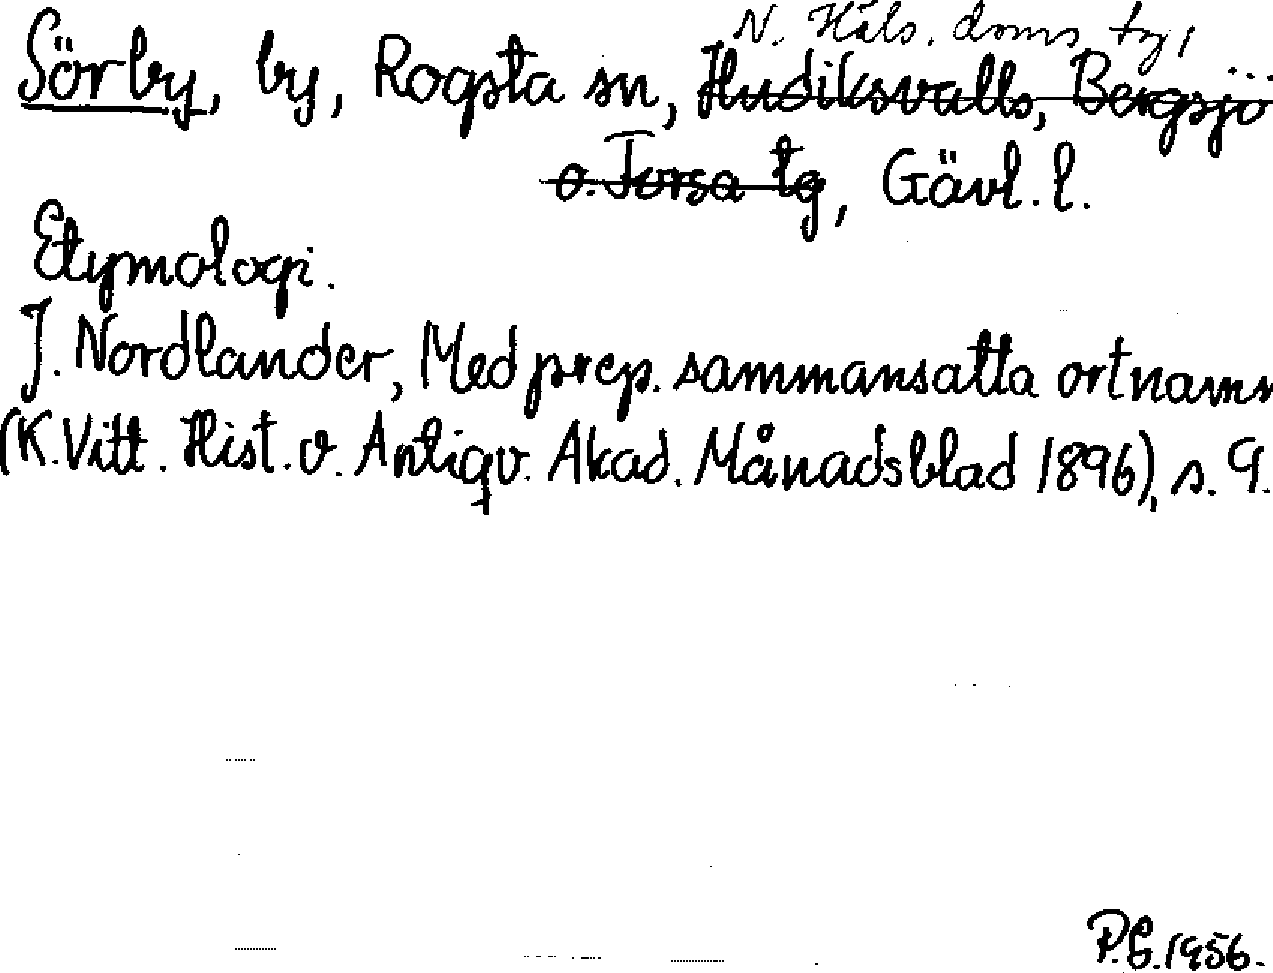 N. Häls. doms. tg,
Sörby, by, Rogsta sn, Hudiksvalls, Bergsjö
o. Forsa tg, Gävl. l.
Etymologi.
J. Nordlander, Med prep. sammansatta ortnamn
(K. Vitt. Hist. o. Antiqv. Akad. Månadsblad 1896), s. 9.
P.G. 1956.